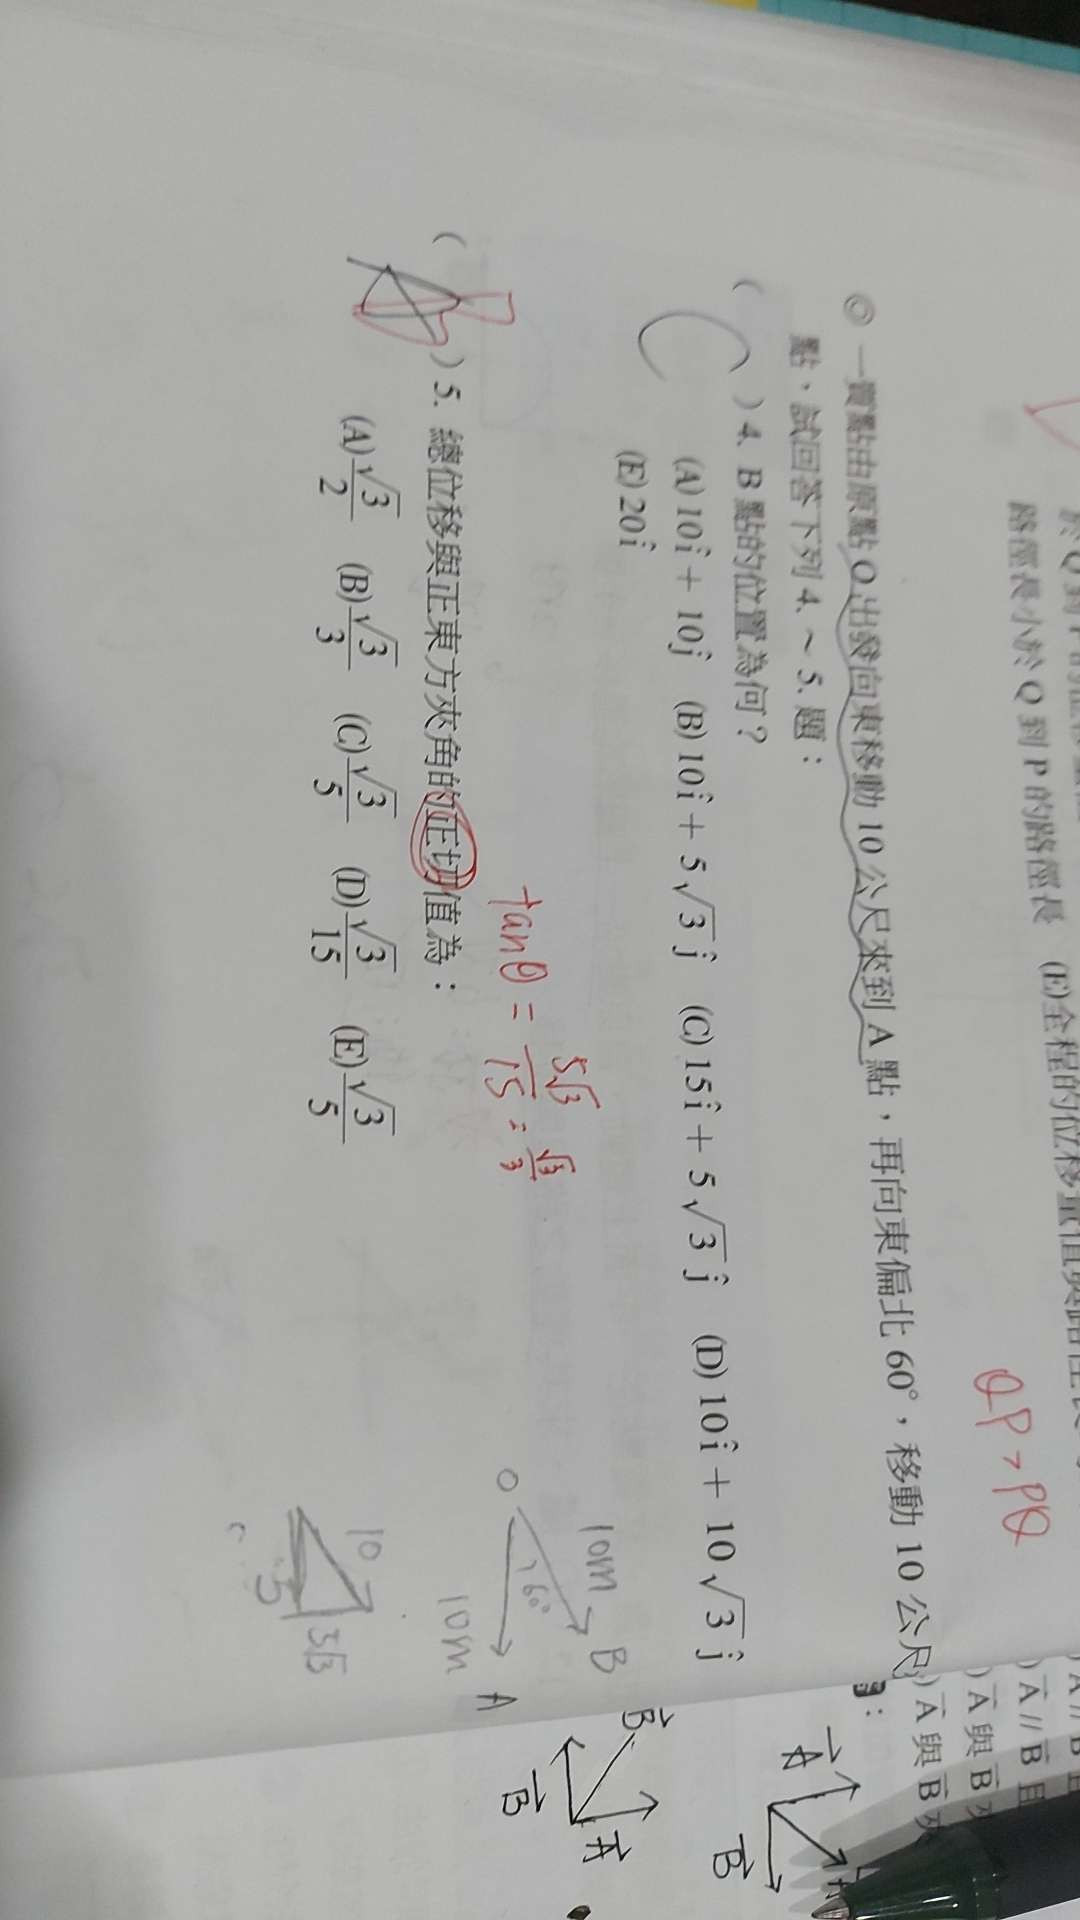 路徑長小於 Q 到 P 的路徑長 (E)全程的位移量值與路徑長
QP > PQ
◎ 一質點由原點 O 出發向東移動 10 公尺來到 A 點，再向東偏北 60°，移動 10 公尺
點，試回答下列 4. ~ 5. 題：
( C ) 4. B 點的位置為何？
(A) 10î + 10ĵ (B) 10î + 5√3 ĵ (C) 15î + 5√3 ĵ (D) 10î + 10√3 ĵ
(E) 20î
tanθ = 5√3/15 = √3/3
( ) 5. 總位移與正東方夾角的正切值為：
(A) √3/2 (B) √3/3 (C) √3/5 (D) √3/15 (E) √3/5
10m B
O 60°
10m A
10
5√3
5
A // B 且
A // B 且
A 與 B
A 與 B
A
B
B
A
B